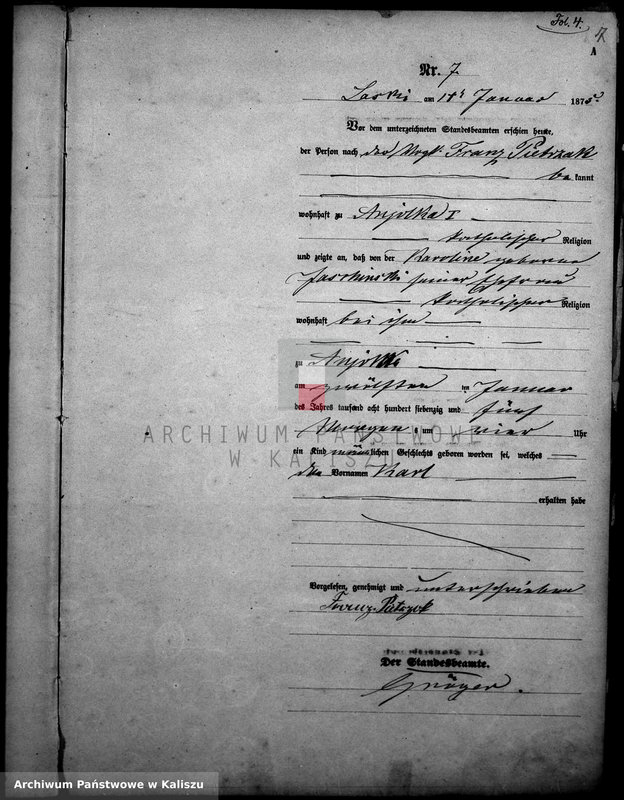 Fol. 4.
4
A
Nr. 7.
Laski am 18t Januar 1875.
Vor dem unterzeichneten Standesbeamten erschien heute,
der Person nach der Vogt Franz Pietrzak
be kannt
wohnhaft zu Anjolka I
katholischer Religion
und zeigte an, daß von der Karoline geborene
Jaschinski seiner Ehefrau
katholischer Religion
wohnhaft bei ihm
zu Anjolka
am zwölften ten Januar
des Jahres tausend acht hundert siebenzig und fünf
Morgens um vier Uhr
ein Kind männlichen Geschlechts geboren worden sei, welches
den Vornamen Karl
erhalten habe
Vorgelesen, genehmigt und unterschrieben
Franz
Der Standesbeamte.
ARCHIWUM PAŃSTWOWE
W KALISZU
Archiwum Państwowe w Kaliszu